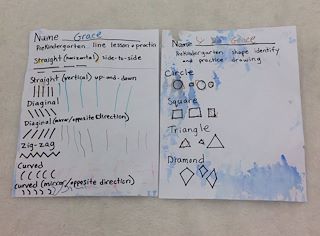 Name Grace
PreKindergarten line lesson + practice
Straight (horizontal) side-to-side
Straight (vertical) up-and-down
Diaginal
Diaginal (mirror/opposite direction)
Zig-zag
Curved
Curved (mirror/opposite direction)
Name Grace
PreKindergarten shape identify
and practice drawing
Circle
Square
Triangle
Diamond